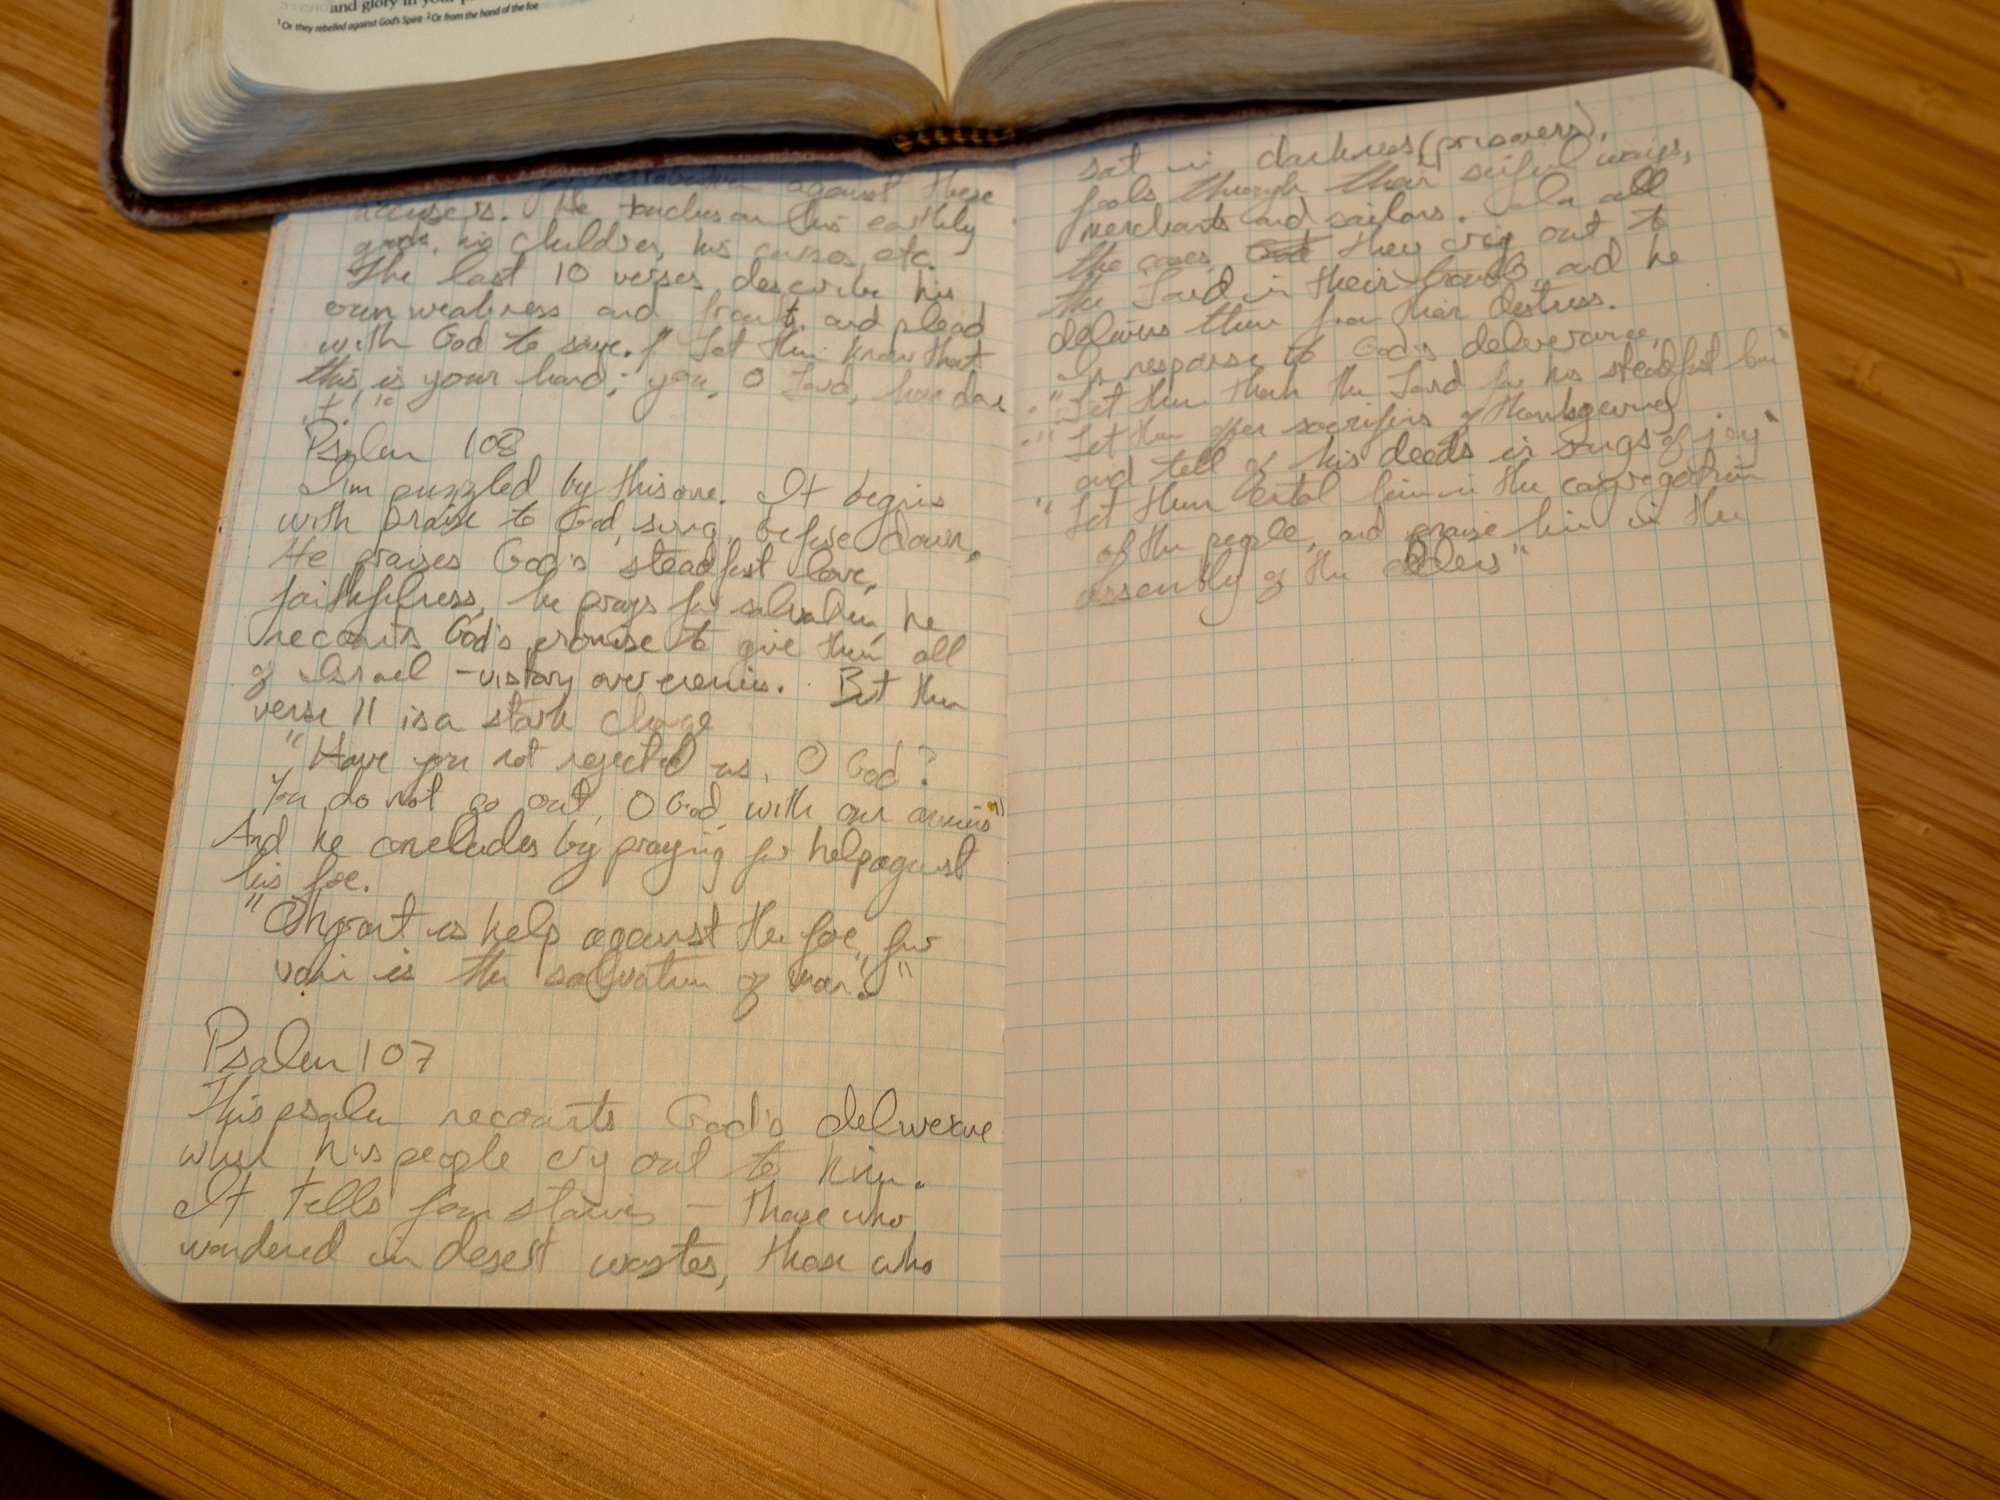 and glory in your
¹Or they rebelled against God's Spirit ²Or from the hand of the foe
against these
accusers. He touches on his earthly
goods, his children, his curses, etc.
The last 10 verses describe his
own weakness and frailty, and plead
with God to save. "Let them know that
this is your hand; you, O Lord, have done
it!"
Psalm 108
I'm puzzled by this one. It begins
with praise to God, sung before dawn.
He praises God's steadfast love,
faithfulness, he prays for salvation, he
recounts God's promise to give them all
of Israel - victory over enemies. But then
verse 11 is a stark change
"Have you not rejected us, O God?
You do not go out, O God, with our armies"
And he concludes by praying for help against
his foe.
"Oh grant us help against the foe, for
vain is the salvation of man!"
Psalm 107
This psalm recounts God's deliverance
when his people cry out to him.
It tells four stories - those who
wandered in desert wastes, those who
sat in darkness (prisoners),
fools through their sinful ways,
merchants and sailors. In all
the cases they cry out to
the Lord in their trouble, and he
delivers them from their distress.
In response to God's deliverance,
"Let them thank the Lord for his steadfast love"
"Let them offer sacrifices of thanksgiving
and tell of his deeds in songs of joy"
"Let them extol him in the congregation
of the people, and praise him in the
assembly of the elders"